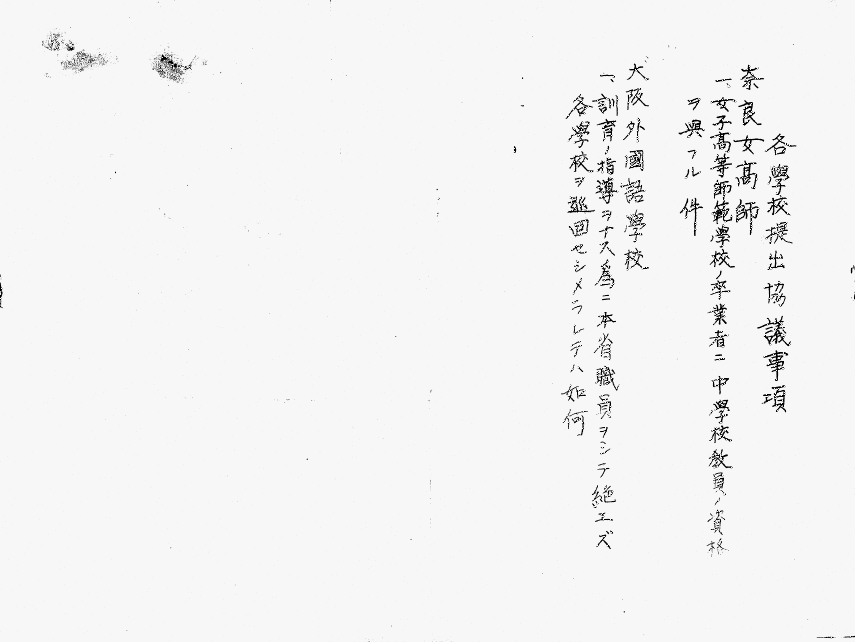 各學校提出協議事項
奈良女高師
一、女子高等師範學校ノ卒業者ニ中學校教員ノ資格
ヲ與フル件
大阪外國語學校
一、訓育ノ指導ヲナス爲ニ本省職員ヲシテ絶エズ
各學校ヲ巡囬セシメラレテハ如何